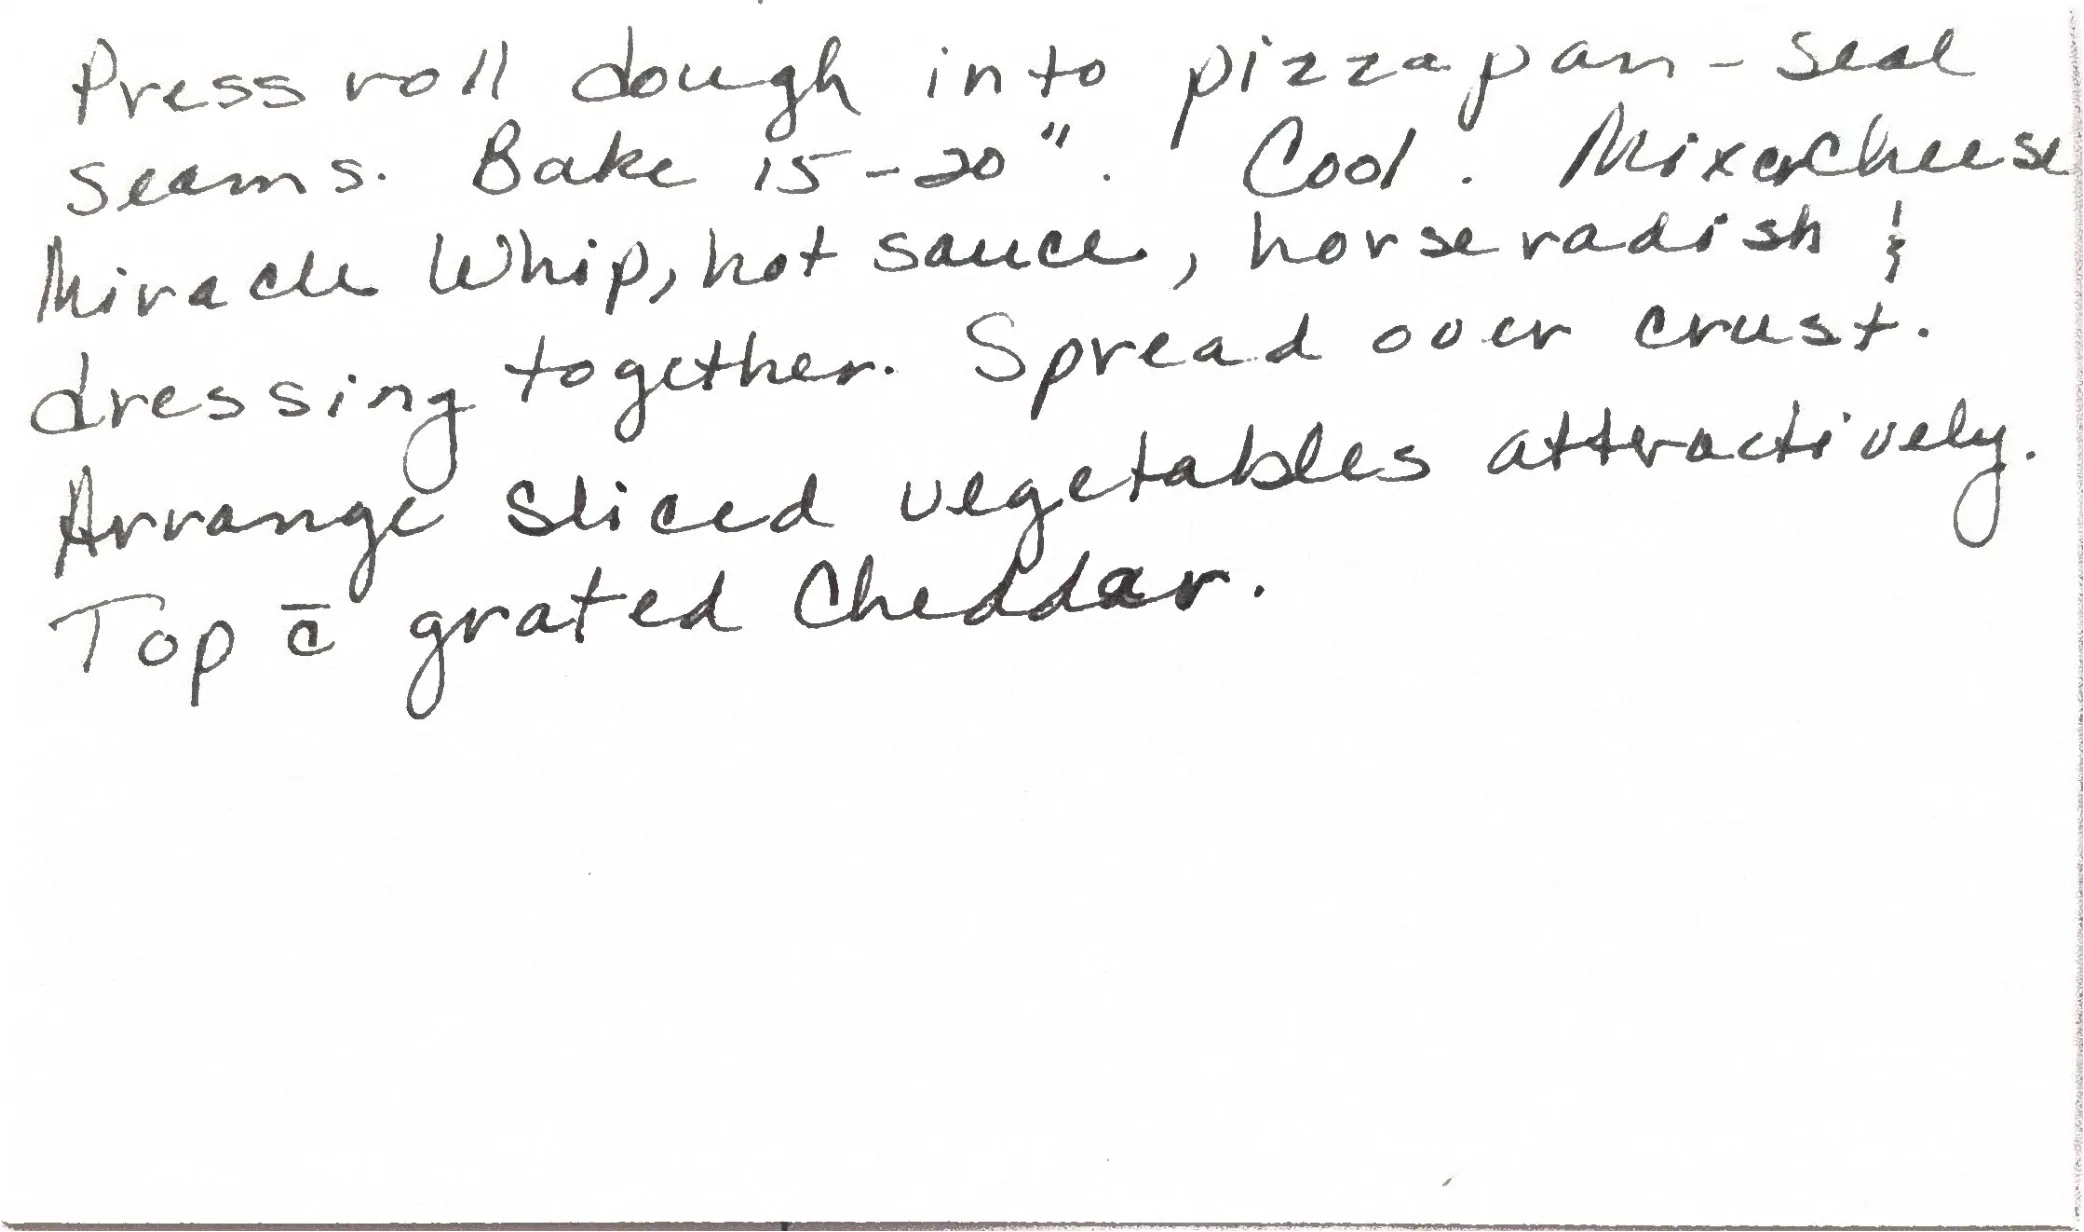 Press roll dough into pizza pan - Seal
seams. Bake 15-20". Cool. Mix cr Cheese
Miracle Whip, hot sauce, horseradish &
dressing together. Spread over crust.
Arrange sliced vegetables attractively.
Top c̄ grated Cheddar.